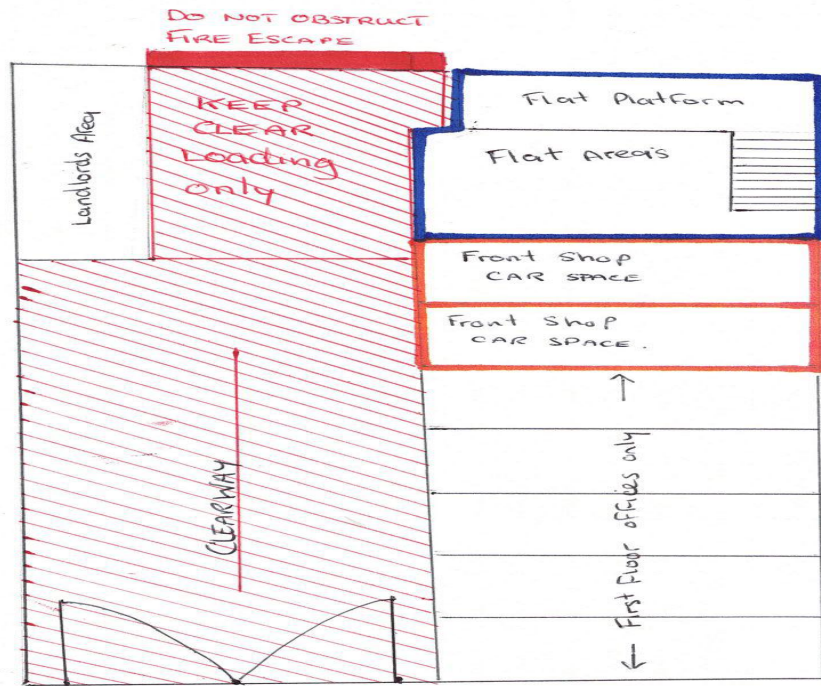 DO NOT OBSTRUCT
FIRE ESCAPE
Landlords Area
KEEP
CLEAR
Loading
only
Flat Platform
Flat Area's
Front Shop
CAR SPACE
Front Shop
CAR SPACE.
CLEARWAY
← First Floor offices only →